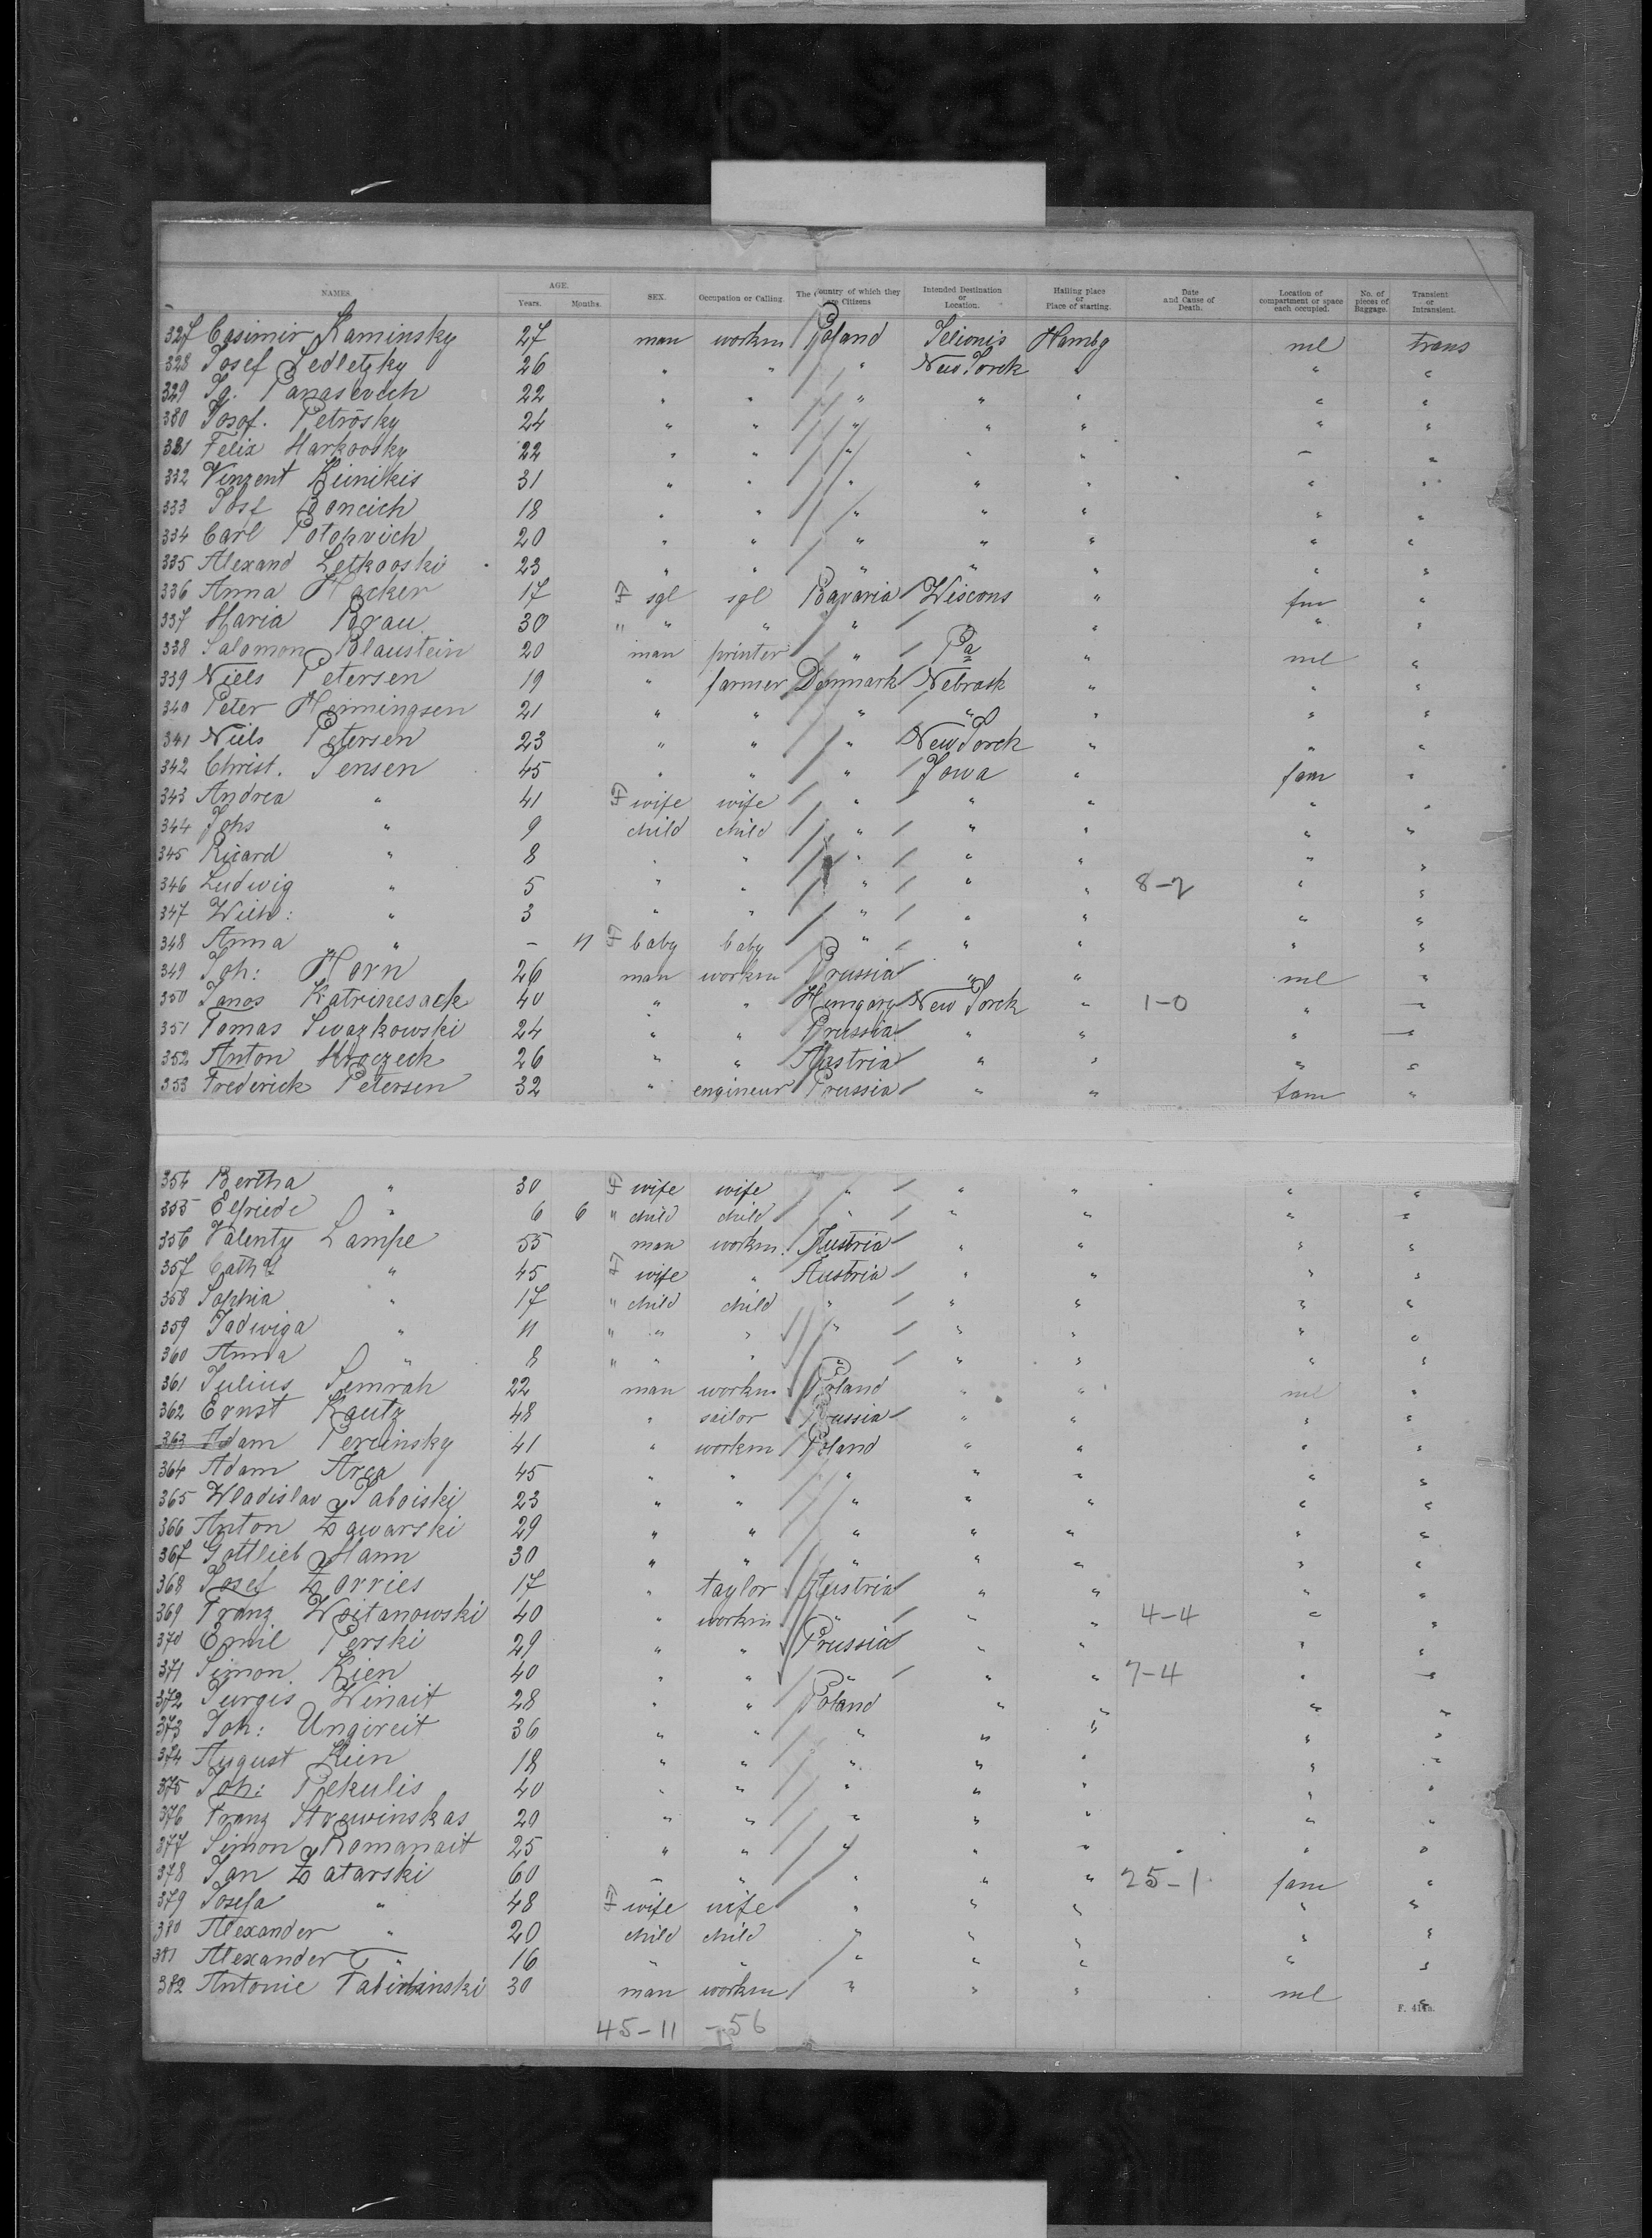 NAMES. AGE. Years. Months. SEX. Occupation or Calling. The Country of which they are Citizens Intended Destination or Location. Hailing place or Place of starting. Date and Cause of Death. Location of compartment or space each occupied. No. of pieces of Baggage. Transient or Intransient.
327 Casimir Kaminsky 27 man workm Poland Hambg ml trans
328 Josef Sedletzky 26 " " " New Yorck " " "
329 Ig. Panasevich 22 " " " " " " "
380 Josof. Petrosky 24 " " " " " " "
381 Felix Markovsky 22 " " " " " " "
332 Vinzent 31 " " " " " " "
333 Josf 18 " " " " " " "
334 Carl Potopvich 20 " " " " " " "
335 Alexand Letkooski 23 " " " " " " "
336 Anna Hacker 17 F sgl sgl Bavaria Wiscons " fm "
337 Maria Brau 30 " " " " " " "
338 Salamon Blaustein 20 man printer " Pa " ml "
339 Niels Petersen 19 " farmer Denmark Nebrask " " "
340 Peter Henningsen 21 " " " " " " "
341 Niels Petersen 23 " " " New Yorck " " "
342 Christ. Jensen 45 " " " Jowa " fam "
343 Andrea " 41 F wife wife " " " " "
344 Johs " 9 child child " " " " "
345 Ricard " 8 " " " " " " "
346 Ludwig " 5 " " " " " 8-2 " "
347 Wilh: " 3 " " " " " " "
348 Anna " - 11 F baby baby " " " " "
349 Joh: Horn 26 man workm Prussia " " ml "
350 Janos Katrinesack 40 " " Hungary New Yorck " 1-0 " "
351 Tomas Swazkowski 24 " " Prussia " " " "
352 Anton Kroczeck 26 " " Austria " " " "
353 Frederick Petersen 32 " engineur Prussia " " fam "
354 Bertha " 30 F wife wife " " " " "
355 Elfriede " 6 6 " child child " " " " "
356 Valenty Lampe 55 man workm. Austria " " " "
357 Cath " 45 F wife " Austria " " " "
358 Sophia " 17 " child child " " " " "
359 Jadwiga " 11 " " " " " " " "
360 Anna " 8 " " " " " " " "
361 Julius Semrah 22 man workm Poland " " ml "
362 Ernst Kautz 48 " sailor Prussia " " " "
363 Adam Percinsky 41 " workm Poland " " " "
364 Adam Arca 45 " " " " " " "
365 Wladislav Saboiski 23 " " " " " " "
366 Anton Zawarski 29 " " " " " " "
367 Gottlieb Mann 30 " " " " " " "
368 Josef Zorries 17 " taylor Austria " " " "
369 Franz Woitanowski 40 " workm " " " 4-4 " "
370 Emil Perski 29 " " Prussia " " " "
371 Simon Kien 40 " " " " " 7-4 " "
372 Jurgis Winait 28 " " Poland " " " "
373 Joh: Ungireit 36 " " " " " " "
374 August Kien 18 " " " " " " "
375 Joh: Pekulis 40 " " " " " " "
376 Franz Strewinskas 20 " " " " " " "
377 Simon Romanait 25 " " " " " " "
378 Jan Zatarski 60 " " " " " 25-1 fam "
379 Josefa " 48 F wife wife " " " " "
380 Alexander " 20 child child " " " " "
381 Alexander " 16 " " " " " " "
382 Antonie 30 man workm " " " ml "
45-11 -56